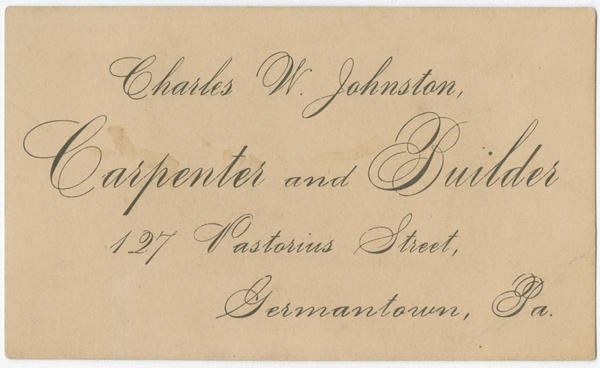 Charles W. Johnston,
Carpenter and Builder
127 Pastorius Street,
Germantown, Pa.